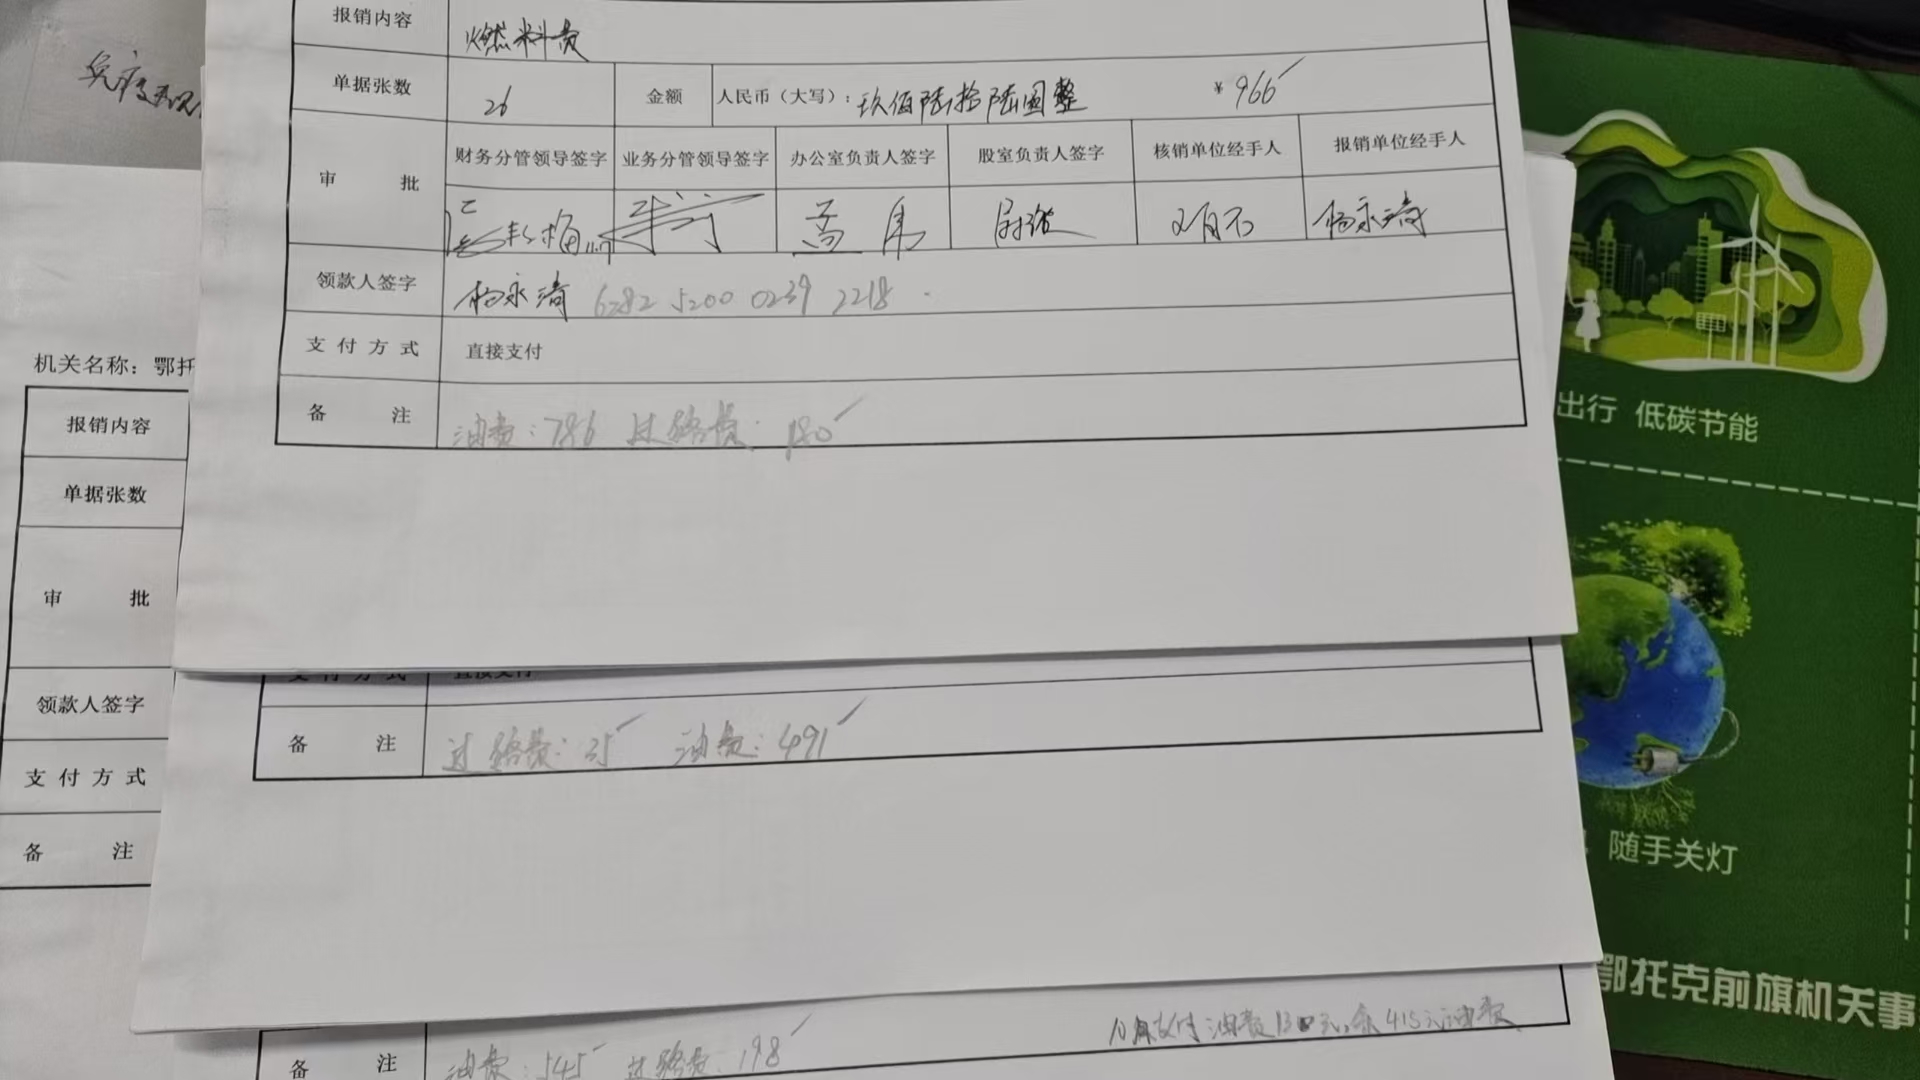 报销内容 燃料费
单据张数 26 金额 人民币（大写）：玖佰陆拾陆圆整 ¥966
审 批 财务分管领导签字 业务分管领导签字 办公室负责人签字 股室负责人签字 核销单位经手人 报销单位经手人
杨永清
领款人签字 杨永清 6282 5200 0239 2218
支付方式 直接支付
备 注 油费：786 过路费：180
支付方式 直接支付
备 注 过路费：25 油费：491
备 注 油费：545 过路费：198
415元油费
免疫
机关名称：鄂托
报销内容
单据张数
审 批
领款人签字
支付方式
备 注
出行 低碳节能
随手关灯
鄂托克前旗机关事